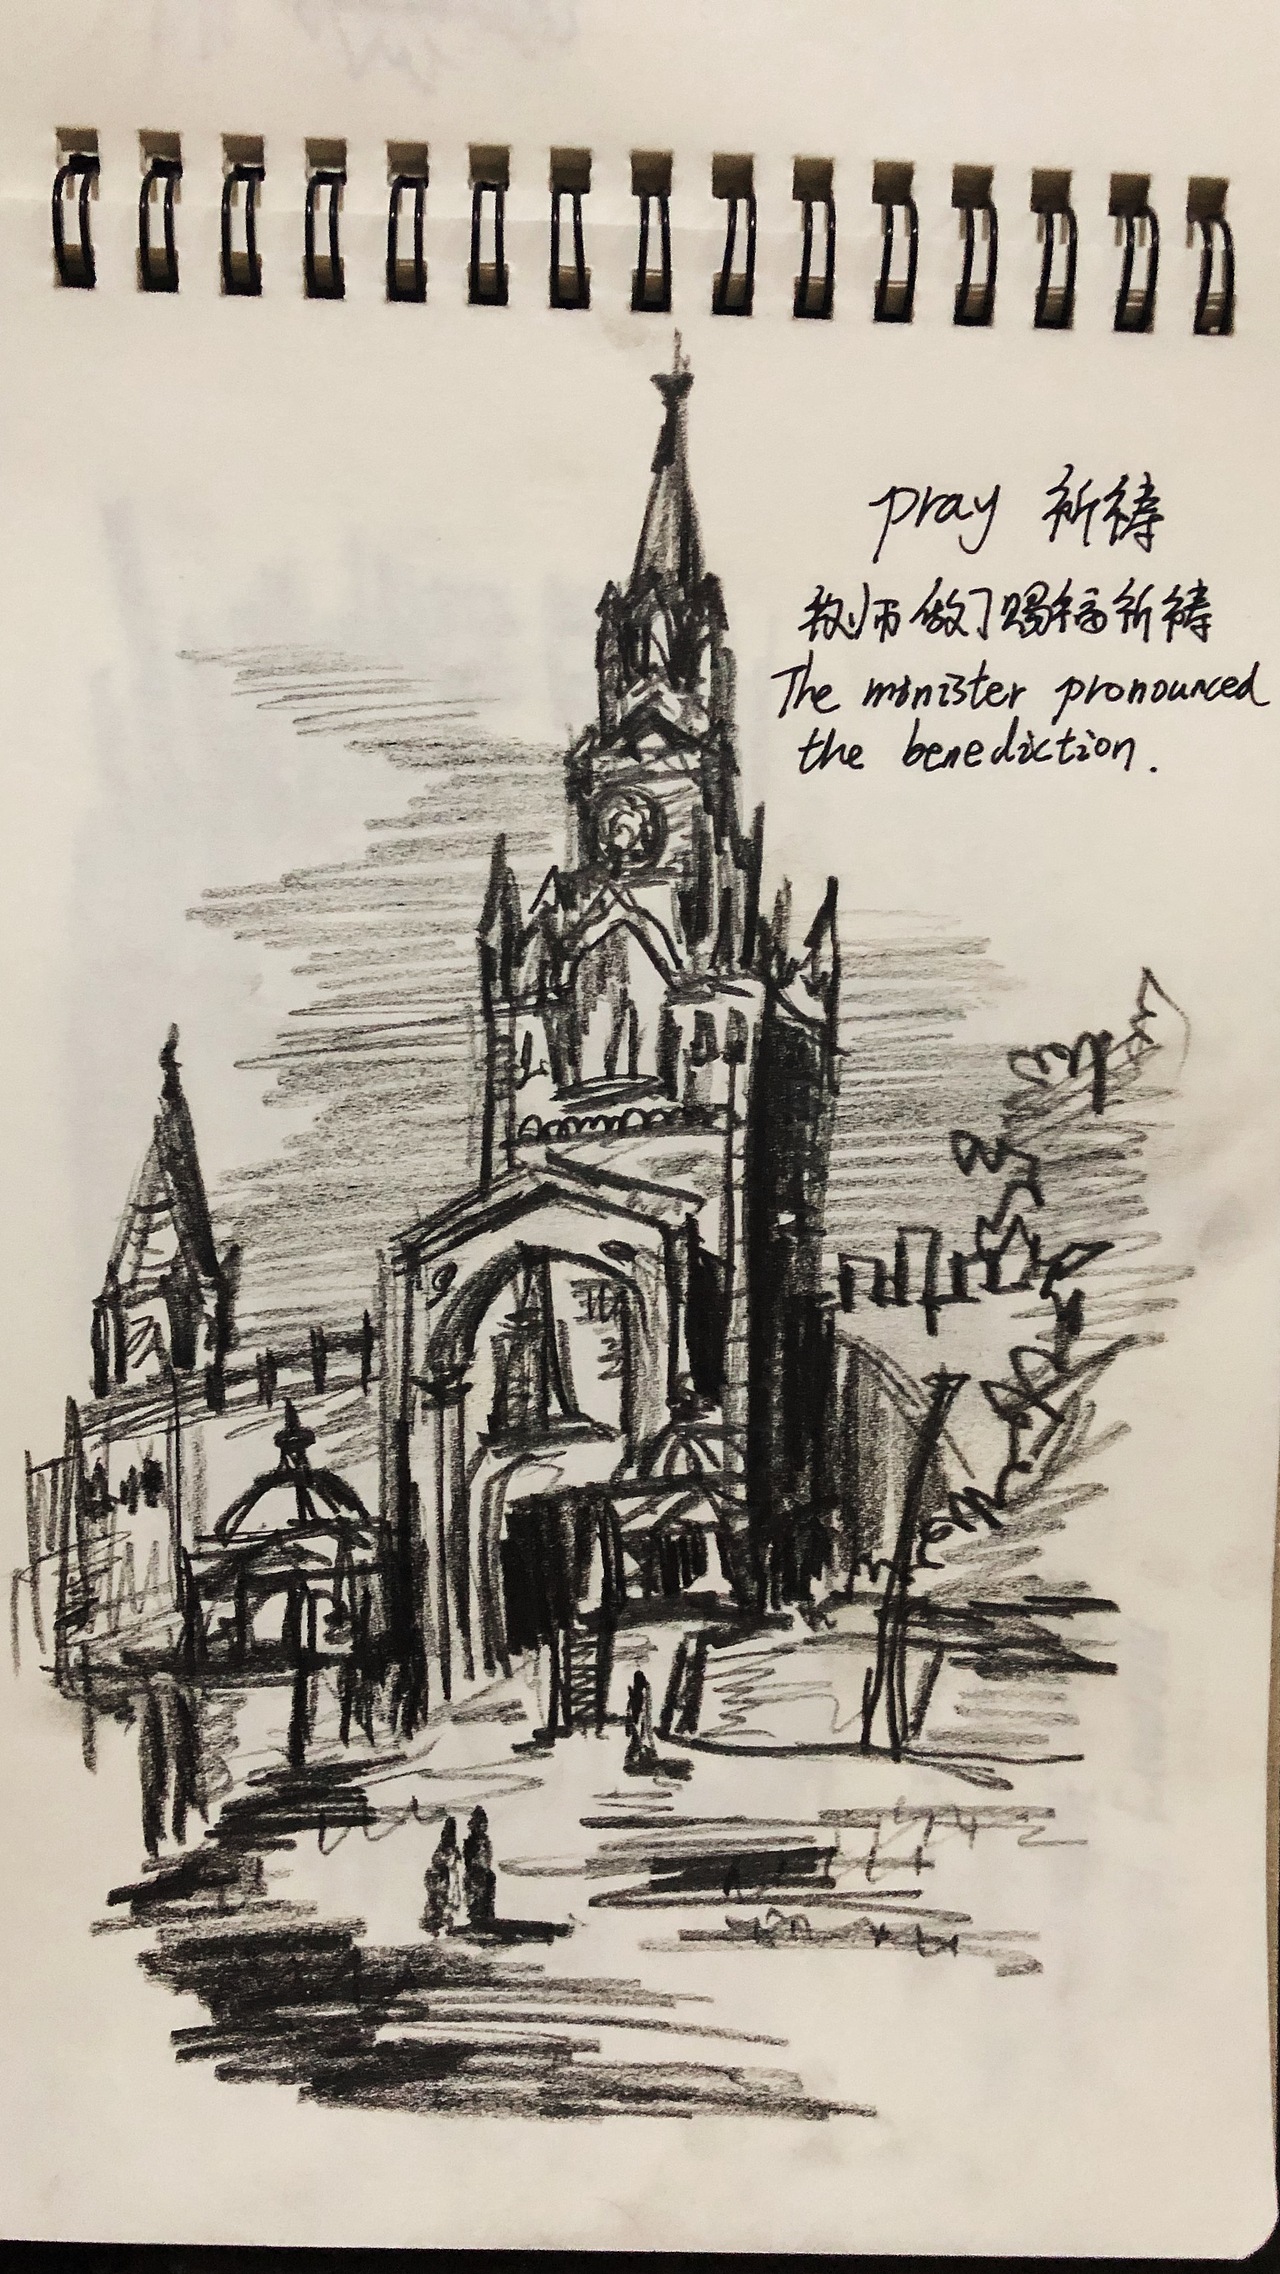 pray 祈祷
牧师做了赐福祈祷
The minister pronounced
the benediction.